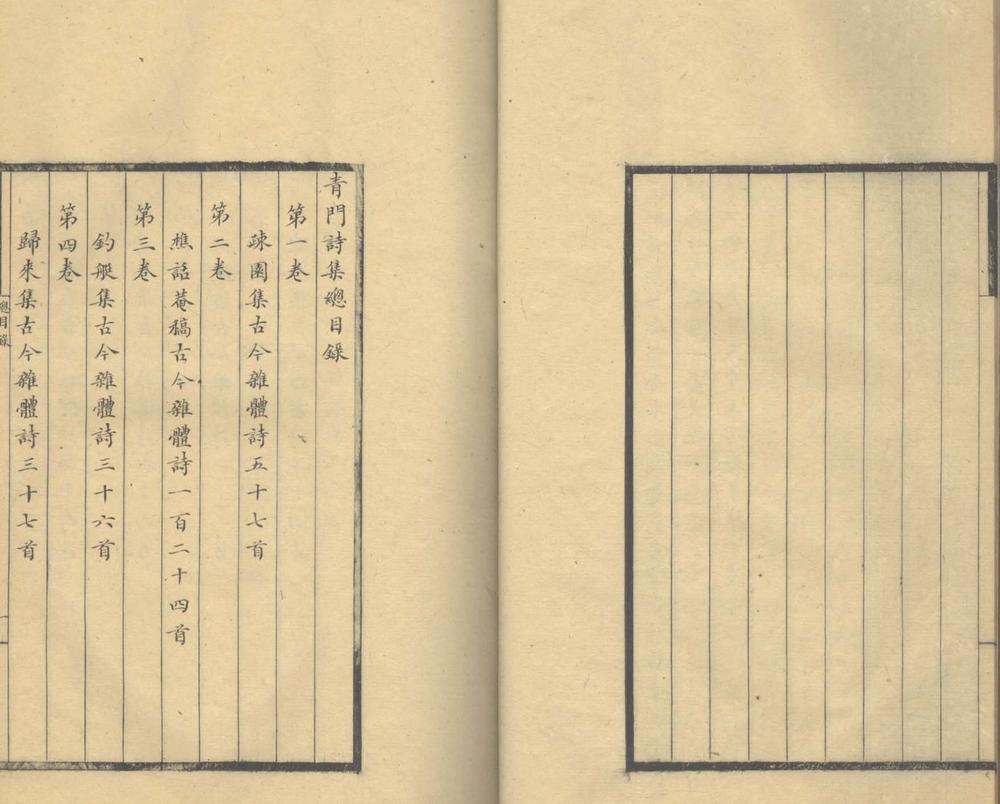 青門詩集總目錄
第一卷
疎園集古今雜體詩五十七首
第二卷
樵話菴稿古今雜體詩一百二十四首
第三卷
釣艇集古今雜體詩三十六首
第四卷
歸來集古今雜體詩三十七首
總目錄